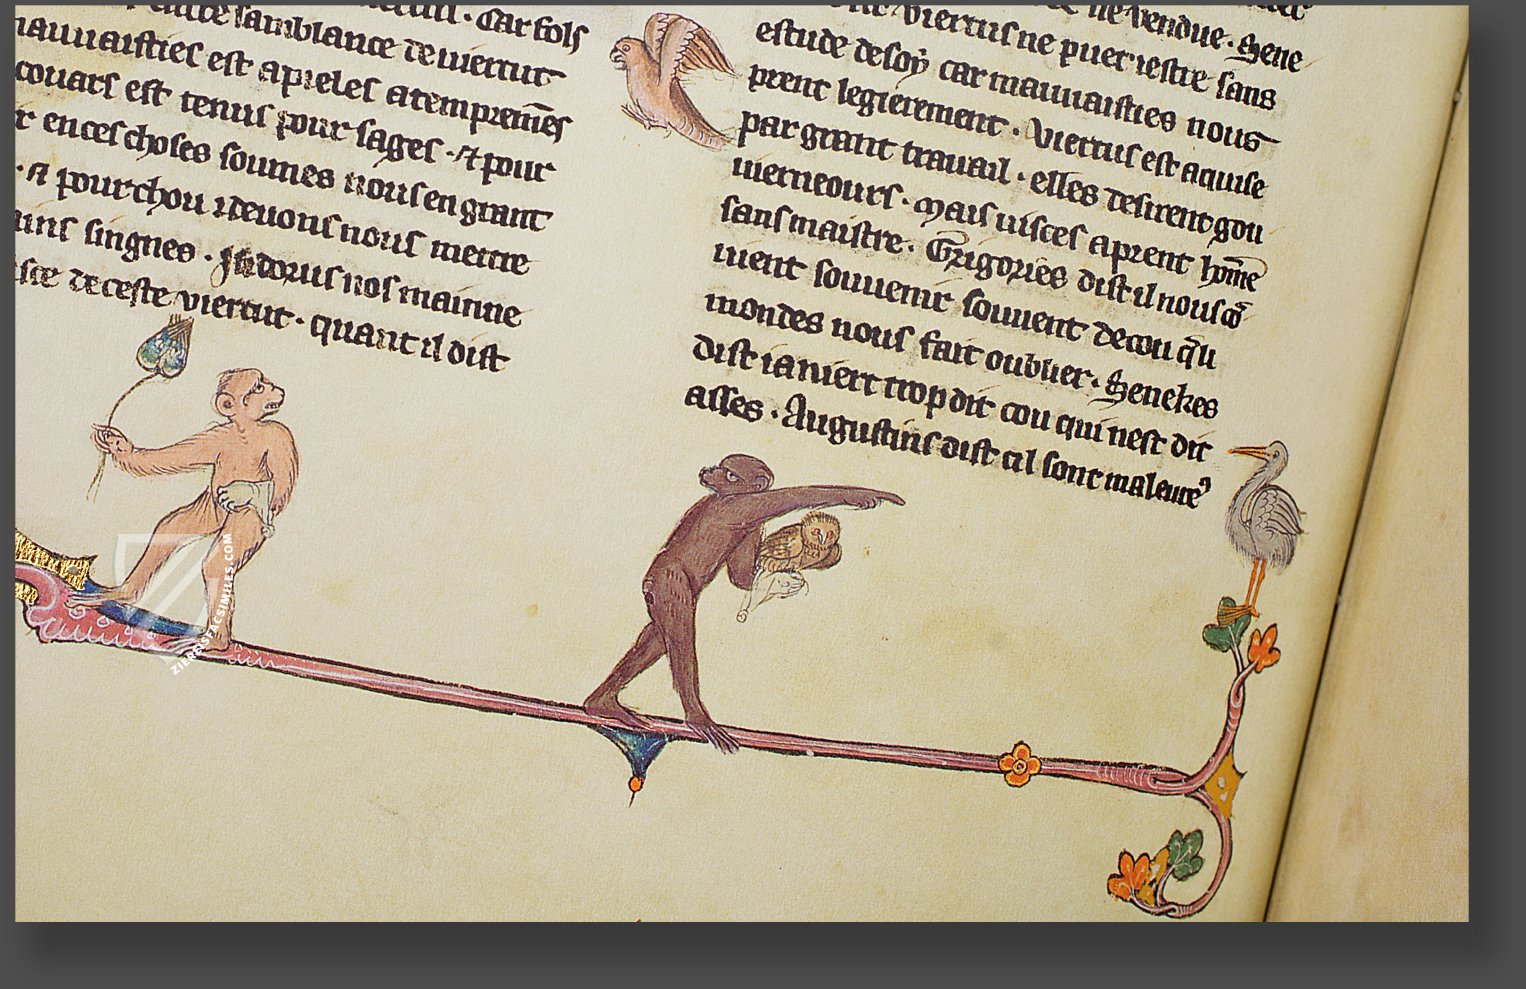 samblance de viertut
mauuaisties est apieles atempremēs
couars est tenus pour sages · ⁊ pour
r en ces choses soumes nous en grant
· ⁊ pour chou i deuons nous metre
ains singnes · Isidorus nos mainne
de ceste viertut · quant il dist
ne vendue · Sene
viertus ne puet iestre sans
estude de soy car mauuaisties nous
prent legierement · Viertus est aquise
par grant trauail · elles desirent gou
uierneours · Mais uisces aprent home
sans maistre · Grigories dist il nous cō
uient souuenir souuent de cou q̄ li
mondes nous fait oublier · Senekes
dist ia niert trop dit cou qui nest dit
asses · Augustins dist cil sont maleure⁹
ZIEREIS FACSIMILES.COM